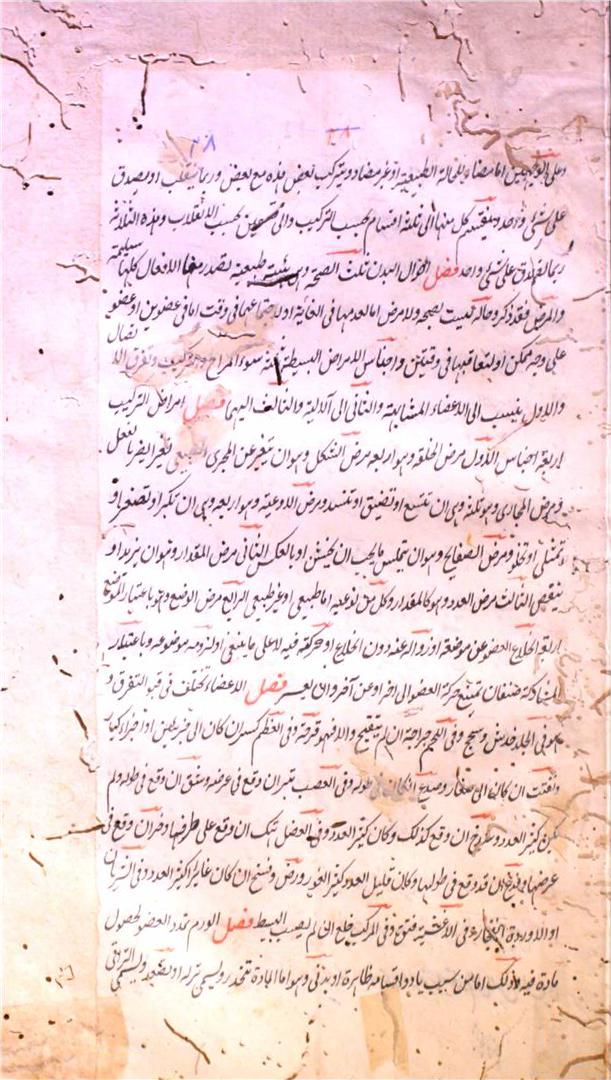 ٢٨
وعلى الوجهين اما مضاد للحالة الطبيعية او غير مضاد ويتركب بعض هذه مع بعض وربما ينقلب او يصدق
على شئ واحد وينقسم كل منها الى ثلثة اقسام بحسب التركيب والى قسمين بحسب الانقلاب وهذه الثلاثة
على شئ واحد فصل احوال البدن ثلث الصحة وهى طبيعية تصدر معها الافعال كلها سليمة
والمرض وقد ذكر وحالة ليست بصحة ولا مرض اما لعدمهما فى الغاية او لاجتماعهما فى وقت اما فى عضوين او عضو
على وجه ممكن او لتعاقبهما فى وقتين واجناس الامراض البسيطة ثلثة سوء المزاج وتفرق الاتصال
والاول ينسب الى الاعضاء المتشابهة والثانى الى الآلية والثالث اليهما فصل امراض التركيب
اربعة اجناس الاول مرض الخلقة وهو اربعة مرض الشكل وهو ان يتغير عن المجرى الطبيعى بالفعل
ومرض المجارى وهو ثلثة وهى ان تتسع او تضيق او تنسد ومرض الاوعية وهو اربعة وهى ان تكبر او تصغر او
تمتلئ او تخلو ومرض الصفائح وهو ان يتملس ما يجب ان يخشن او بالعكس الثانى مرض المقدار وهو ان يزيد او
ينقص الثالث مرض العدد وهو كالمقدار وكل من نوعيه اما طبيعى او غير طبيعى الرابع مرض الوضع وهو باعتبار الموضع
اربعة انخلاع العضو عن موضعه او زواله عنه دون انخلاع او حركته فيه لا على ما ينبغى او لزومه موضعه وباعتبار
المشاركة صنفان يمتنع حركة العضو الى آخر او عن آخر وان يعسر فصل الاعضاء تختلف فى قبول التفرق و
هو فى الجلد خدش وسحج وفى اللحم جراحة ان لم يتقيح والا فهو قرحة وفى العظم كسر ان كان الى جزئين او اجزاء كبار
وتفتت ان كان الى صغار وصدع ان كان فى طوله وفى العصب بتر ان وقع فى عرضه وشق ان وقع فى طوله ولم
يكن كثير العدد وشدخ ان وقع كذلك وكان كثير العدد وفى العضل هتك ان وقع على طرفها وحز ان وقع فى
عرضها وفدغ ان قد وقع فى طولها وكان قليل العدد كثير الغور ورض وفسخ ان كان غائرا كثير العدد وفى الشريان
او الاوردة انفجار وفى الاغشية فتق وفى المركب خلع ان لم يصب البسيط فصل الورم تمدد العضو لحصول
مادة فيه وذلك اما من سبب باد واقسامه ظاهرة او بدنى وهو اما لمادة تنحدر ويسمى نزلة او تصعد ويسمى التراقى